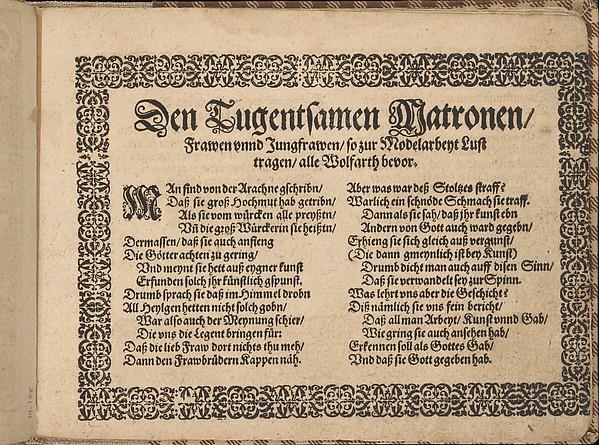 Den Tugentsamen Matronen/
Frawen vnnd Jungfrawen/ so zur Modelarbeyt Lust
tragen/ alle Wolfarth bevor.
MAn find von der Arachne gschribn/
Daß sie groß Hochmut hab getribn/
Als sie vom würcken alle preyßtn/
Vñ die groß Würckerin sie heißtn/
Dermassen/ daß sie auch anfieng
Die Götter achten zu gering/
Vnd meynt sie hett auß eygner kunst
Erfunden solch ihr künstlich gspunst.
Drumb sprach sie daß im Himmel drobn
All Heylgen hetten nicht solch gobn/
War also auch der Meynung schier/
Die vns die Legent bringen für:
Daß die lieb Fraw dort nichts thu meh/
Dann den Frawbrüdern Kappen näh.
Aber was war deß Stoltzes straff?
Warlich ein schnöde Schmach sie traff.
Dann als sie sah/ daß jhr kunst ebn
Andern von Gott auch ward gegebn/
Erhieng sie sich gleich auß vergunst/
(Die dann gmeynlich ist bey Kunst)
Drumb dicht man auch auff disen Sinn/
Daß sie verwandelt sey zur Spinn.
Was lehrt vns aber die Geschicht?
Diß nämlich sie vns fein bericht/
Daß all man Arbeyt/ Kunst vnnd Gab/
Wie gring sie auch ansehen hab/
Erkennen soll als Gottes Gab/
Vnd daß sie Gott gegeben hab.